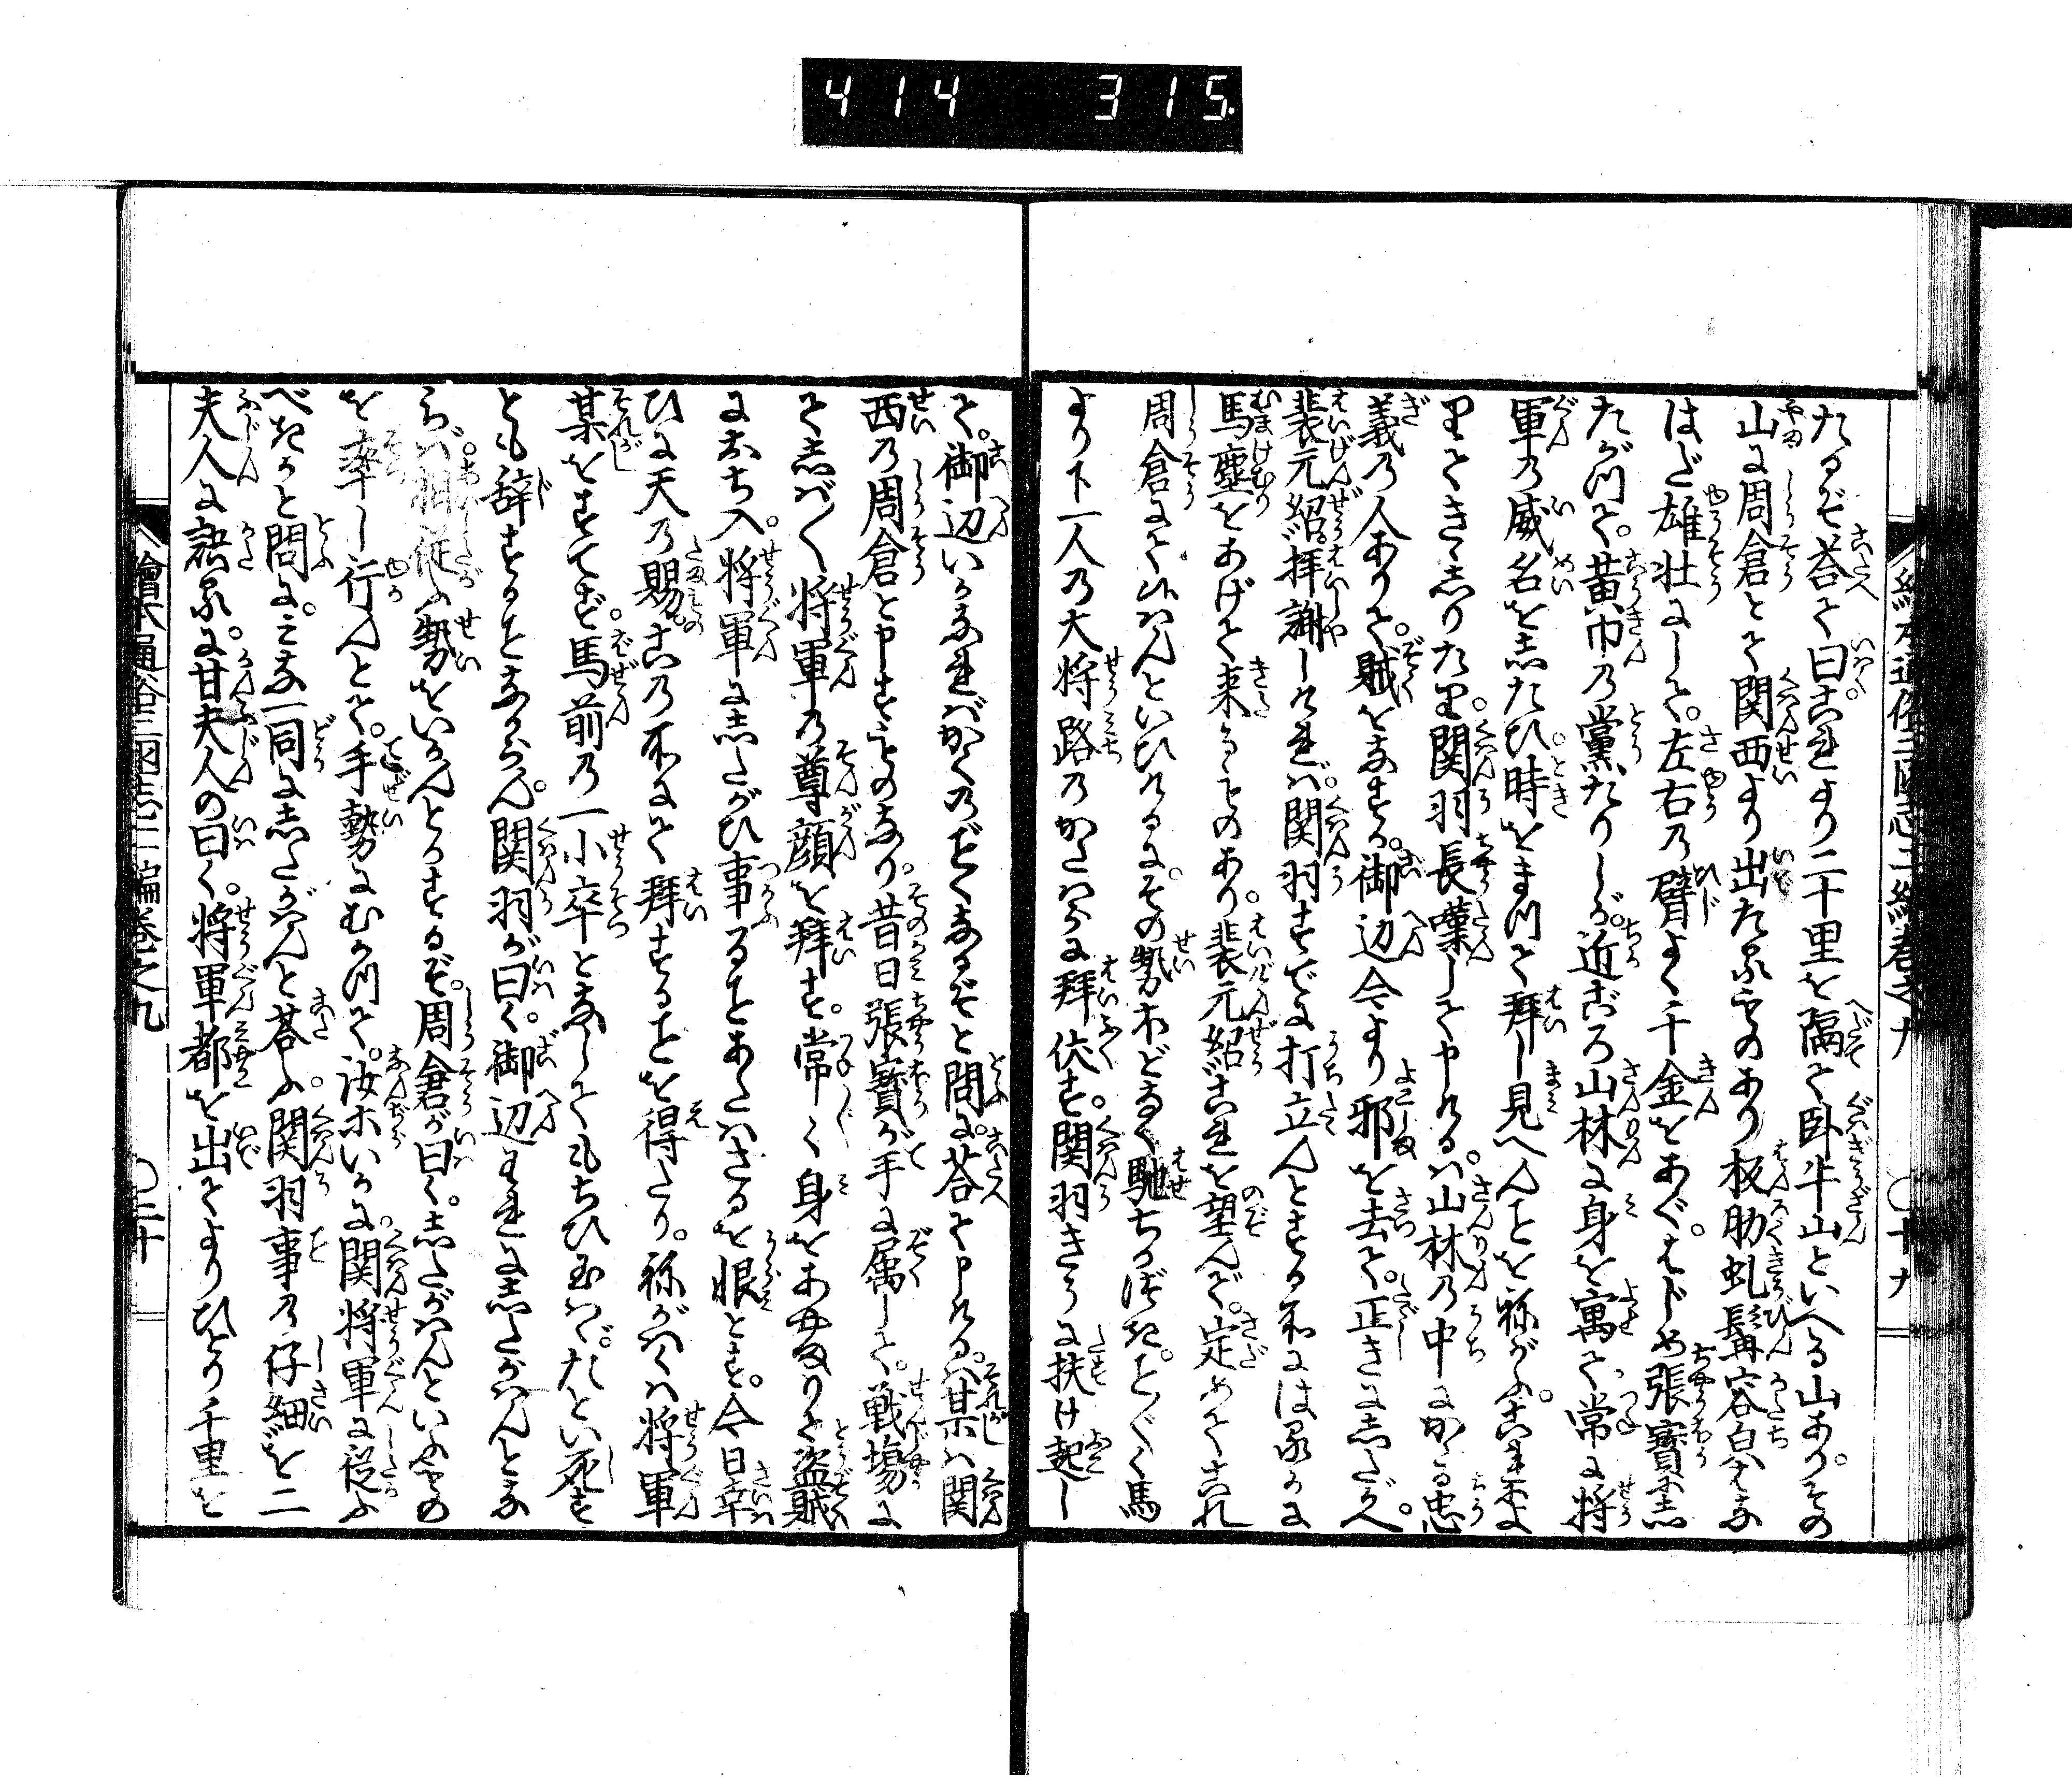 414 315
絵本通俗三国志二編巻之九 〇十九
たるぞ荅て曰これより二十里を隔て卧牛山といへる山ありその
山に周倉とて関西より出たるものあり板肋虬髯容㒵はな
はだ雄壮にして左右の臂よく千金をあぐはじめ張寳に志
たがつて黄巾の黨たりしが近ごろ山林に身を寓て常に将
軍の威名を志たひ時をまつて拜し見へんことを祢がふこれによ
りてきゝしりたり関羽長嘆して申ける は山林の中にかゝる忠
義の人ありて賊をなせる御辺今より邪を去て正きに志たがへ
裴元紹拜謝しければ関羽すでに打立んとする所にはるかに
馬塵をあげて来るものあり裴元紹これを望んで定めてこれ
周倉にて候はんといひけるにその勢ホどなく馳ちかづきことごとく馬
より下一人の大将路のかたはらに拜伏す関羽きうに扶け起し
て御辺いかなればかくのごとくなるぞと問に荅て申ける某は関
西の周倉と申すものなり昔日張寳が手に属して戦塲に
て志ばしば将軍の尊顔を拜す常々身をあやまりて盗賊
におち入将軍に志たがひ事ることあたはざるを恨とす今日幸
ひに天の賜この所にて拜することを得たり祢がはくは将軍
某をすてず馬前の一小卒となしてもちひ玉はゞたとい死す
とも辞することなからん関羽が曰く御辺われに志たがはんとな
らば相従ふ勢をいかんとするぞ周倉が曰く志たがはんといふもの
を率し行んとて手勢にむかつて汝ホいかに関将軍に従ふ
べきかと問にミな一同に志たがはんと荅ふ関羽事の仔細を二
夫人に訴るに甘夫人の曰く将軍都を出てよりひとり千里を
繪本通俗三国志二編巻之九 〇二十